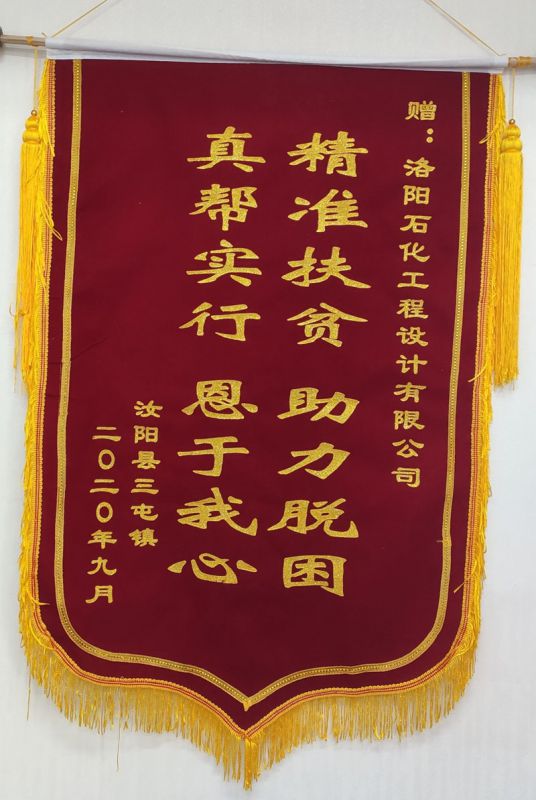 赠：洛阳石化工程设计有限公司
精准扶贫 助力脱困
真帮实行 恩于我心
汝阳县三屯镇
二〇二〇年九月